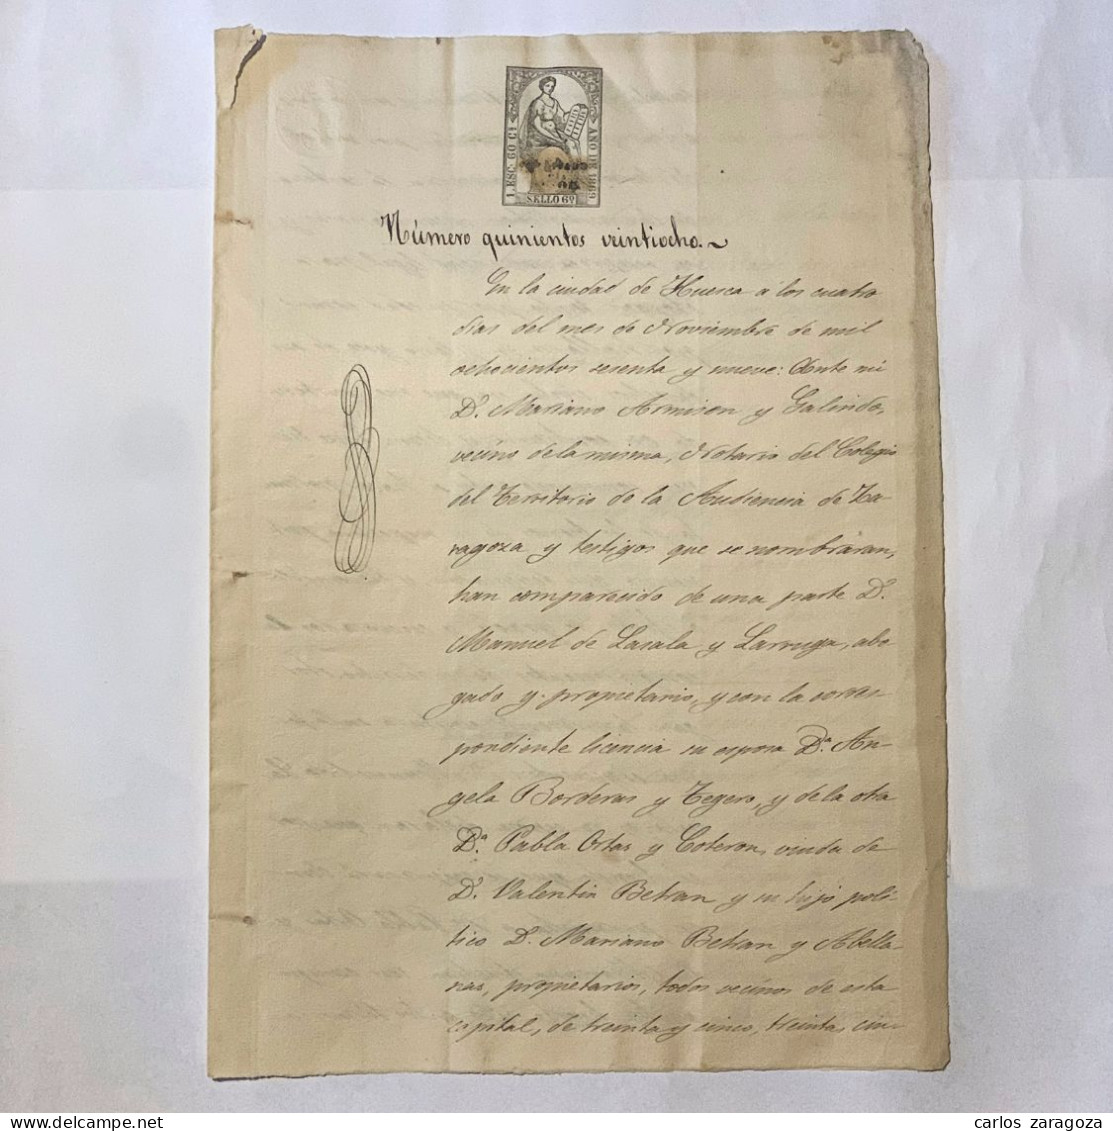 1. ESC. 60 Cs
AÑO DE 1869.
SELLO 6º
Número quinientos veintiocho.~
En la ciudad de Huesca á los cuatro
dias del mes de Noviembre de mil
ochocientos sesenta y nueve: Ante mi
Dn. Mariano Armison y Galindo,
vecino de la misma, Notario del Colegio
del Territorio de la Audiencia de Za-
ragoza y testigos que se nombraran,
han comparecido de una parte Dn.
Manuel de Lasala y Larruga, abo
gado y propietario, y con la corres
pondiente licencia su esposa Dª. An-
gela Borderas y Tegero, y de la otra
Dª. Pabla Ortas y Coteron, viuda de
Dn. Valentin Betran y su hijo polí-
tico Dn. Mariano Betran y Abella-
nas, propietarios, todos vecinos de esta
capital, de treinta y cinco, treinta, cin-
carlos zaragoza